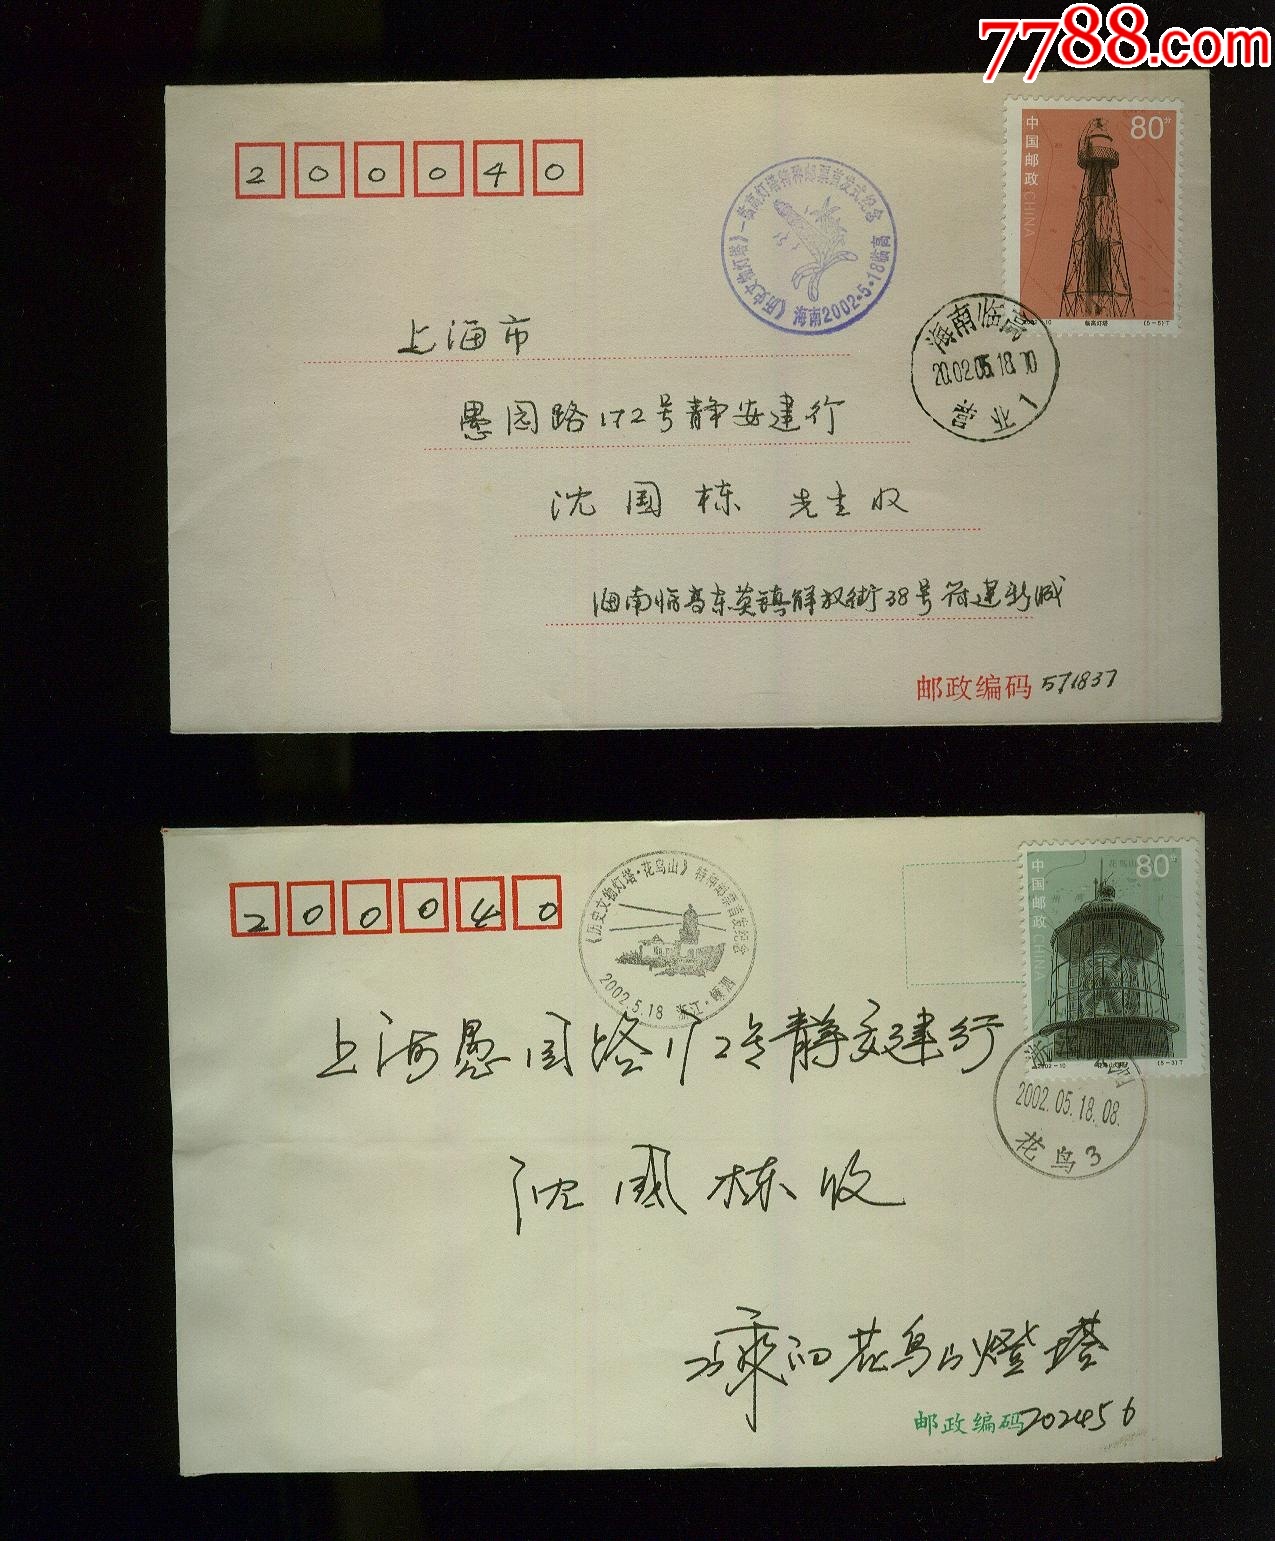 7788.com
200040
《历史文物灯塔》—临高灯塔特种邮票首发式纪念
海南2002·5·18临高
中国邮政 CHINA
80分
2002-10
临高灯塔
(5-5)T
海南临高
2002.05.18.10
上海市
愚园路172号静安建行
沈国栋 先生收
海南临高东英镇解放街38号符建新缄
邮政编码 571837
200040
《历史文物灯塔·花鸟山》特种邮票首发纪念
2002.5.18 浙江·嵊泗
中国邮政 CHINA
80分
花鸟山
2002-10
花鸟山灯塔
(5-3)T
浙
2002.05.18.08
花鸟3
上海愚园路172号静安建行
沈国栋收
嵊泗花鸟山燈塔
邮政编码 202456